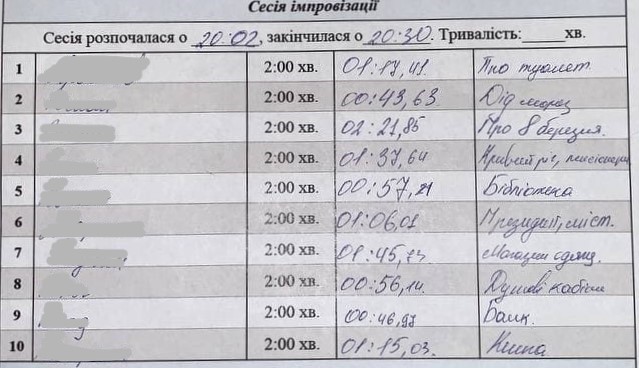 Сесія імпровізації
Сесія розпочалася о 20:02, закінчилася о 20:30. Тривалість:______хв.
1 2:00 хв. 01:17,41 Про туалет.
2 2:00 хв. 00:43,63 Дід мороз
3 2:00 хв. 02:21,85 Про 8 березня.
4 2:00 хв. 01:37,64 Кривий ріг, пенсіонери
5 2:00 хв. 00:57,21 Бібліотека
6 2:00 хв. 01:06,01 Президент, міст.
7 2:00 хв. 01:45,73 Магазин одягу.
8 2:00 хв. 00:56,14. Душові кабіни
9 2:00 хв. 00:46,97 Банк.
10 2:00 хв. 01:15,03.